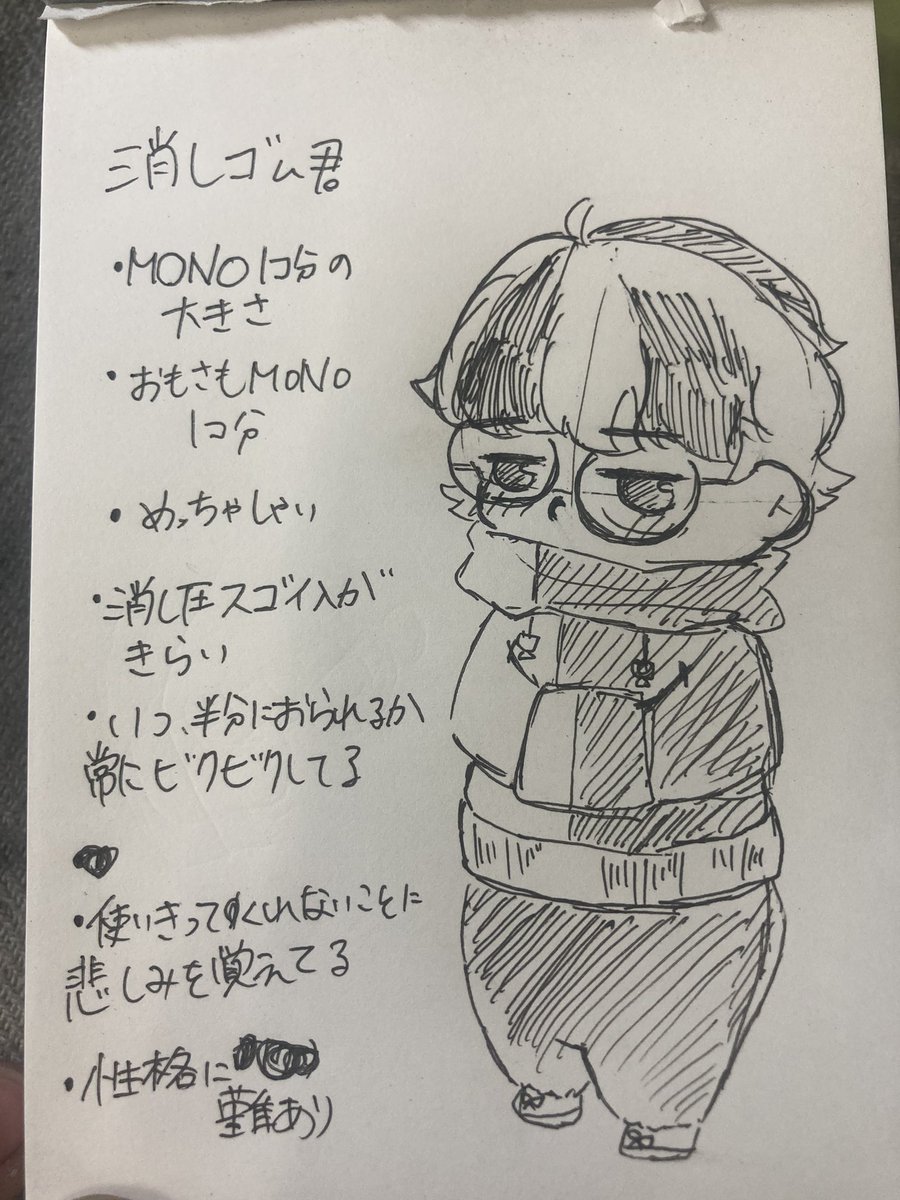 消しゴム君
・MONO1コ分の
大きさ
・おもさもMONO
1コ分
・めっちゃしゃい
・消し圧スゴイ人が
きらい
・いつ、半分におられるか
常にビクビクしてる
・使いきってくれないことに
悲しみを覚えてる
・性格に
難あり